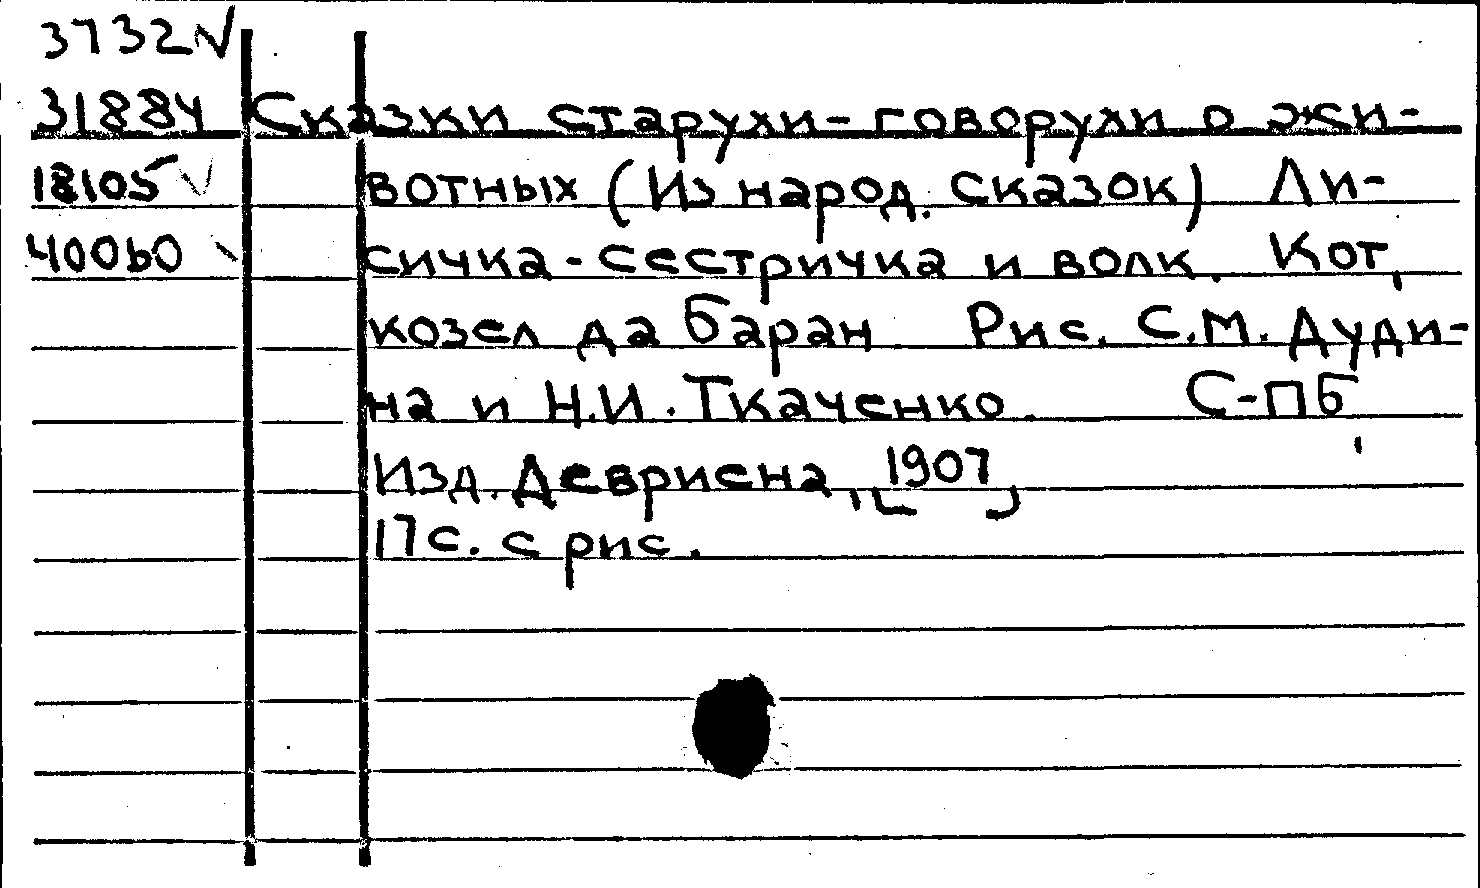 3732 √
31884 Сказки старухи-говорухи о жи-
18105 √ вотных (Из народ. сказок) Ли-
40060 сичка-сестричка и волк. Кот,
козел да баран. Рис. С.М. Дуди-
на и Н.И. Ткаченко. С-ПБ,
Изд. Девриена, [1907]
17с. с рис.